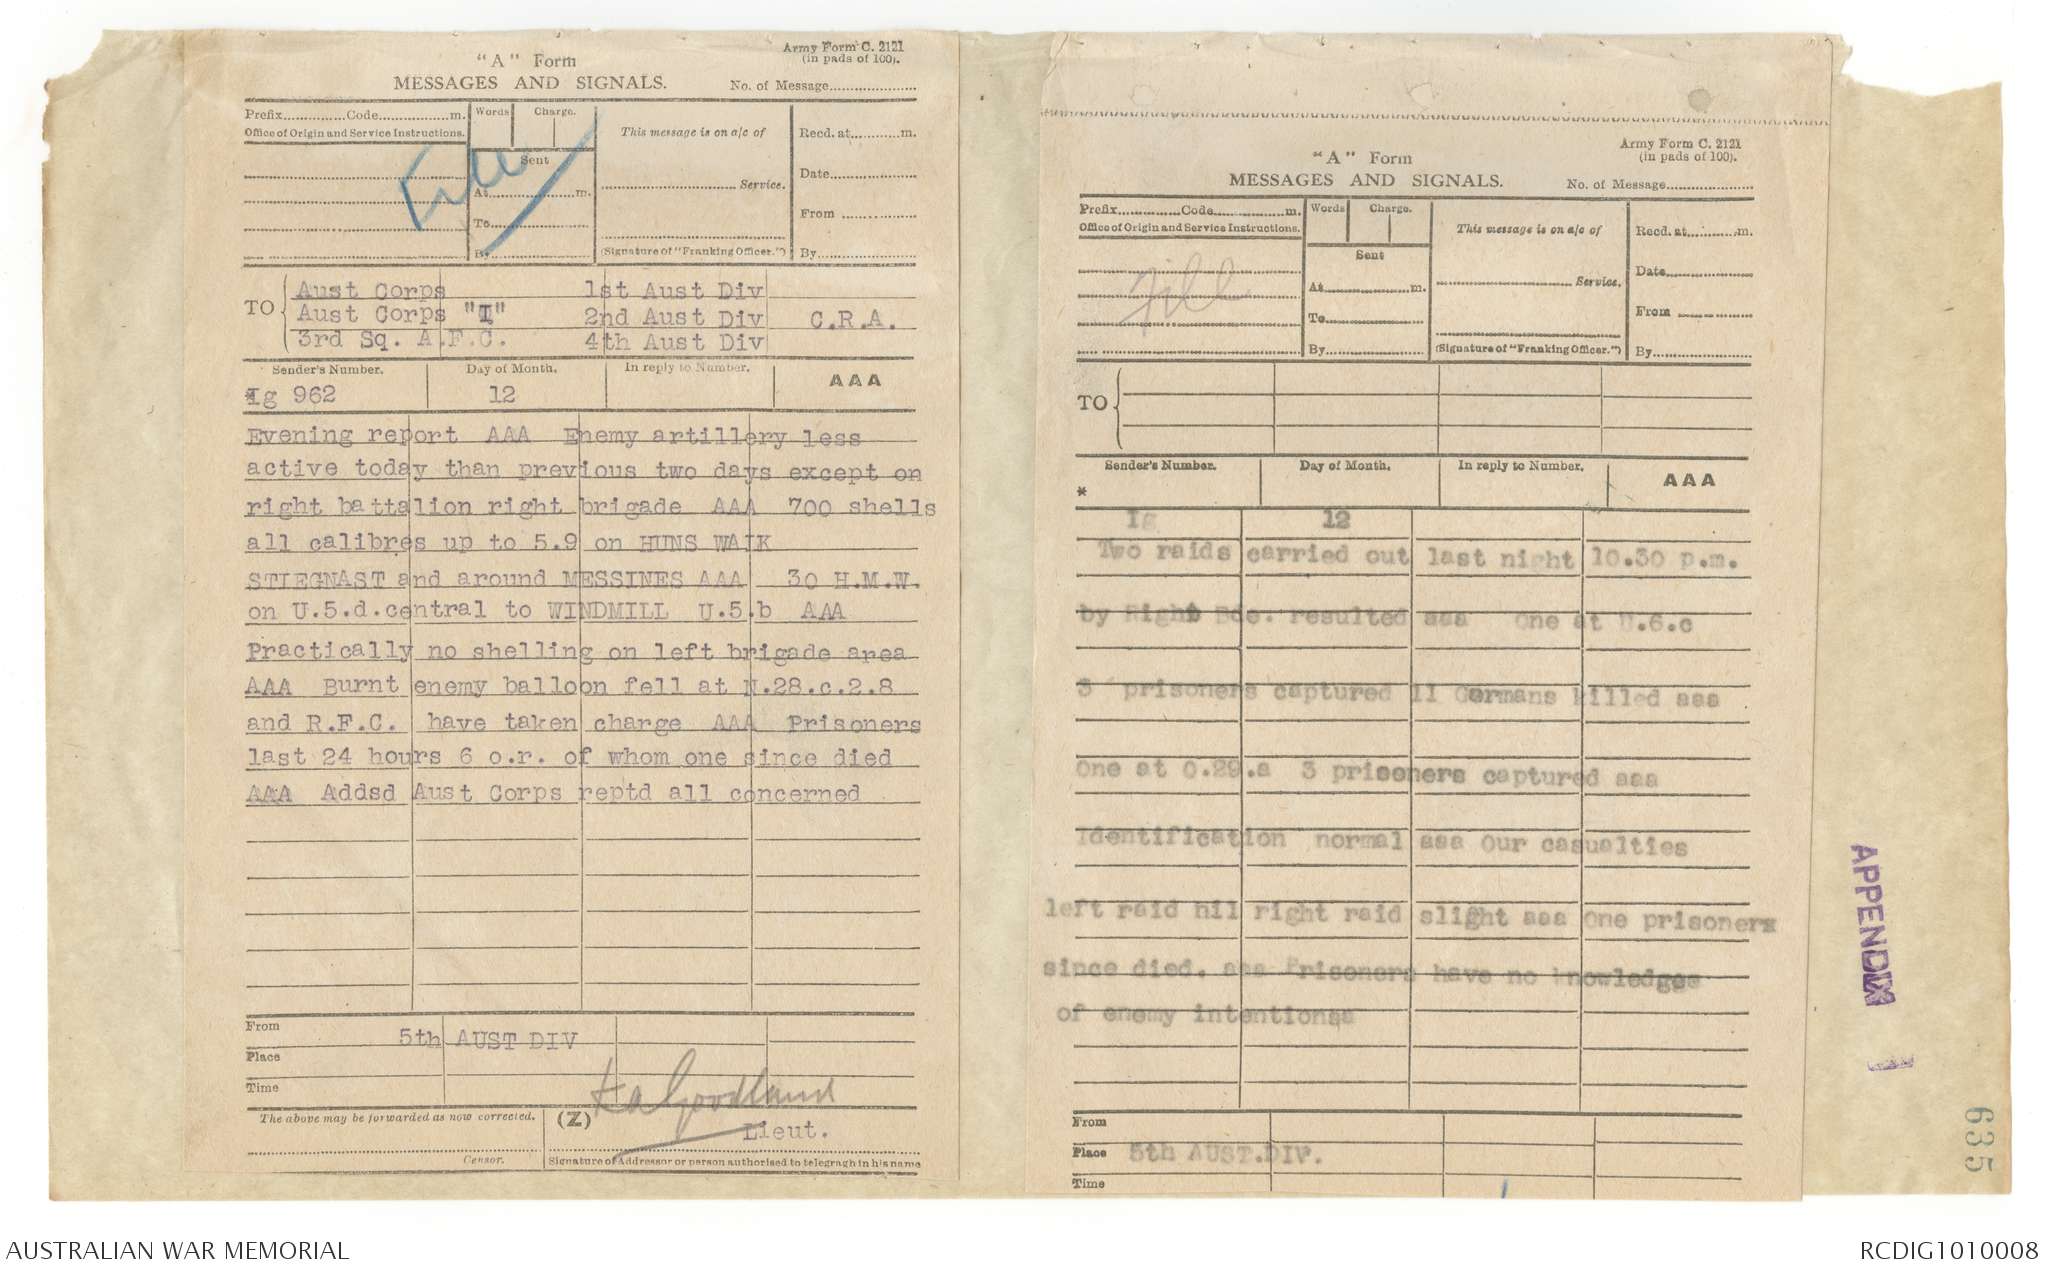 "A" Form
Army Form C. 2121
(in pads of 100).
MESSAGES AND SIGNALS.
No. of Message
Prefix Code m.
Words Charge.
Office of Origin and Service Instructions.
File
Sent
At m.
To
By
This message is on a/c of
Service.
(Signature of "Franking Officer.")
Recd. at m.
Date
From
By
TO
Aust Corps 1st Aust Div
Aust Corps "I" 2nd Aust Div C.R.A.
3rd Sq. A.F.C. 4th Aust Div
Sender's Number. Day of Month. In reply to Number. AAA
Ig 962 12
Evening report AAA Enemy artillery less
active today than previous two days except on
right battalion right brigade AAA 700 shells
all calibres up to 5.9 on HUNS WALK
STIEGNAST and around MESSINES AAA 30 H.M.W.
on U.5.d.central to WINDMILL U.5.b AAA
Practically no shelling on left brigade area
AAA Burnt enemy balloon fell at N.28.c.2.8
and R.F.C. have taken charge AAA Prisoners
last 24 hours 6 o.r. of whom one since died
AAA Addsd Aust Corps reptd all concerned
From
5th AUST DIV
Place
Time
The above may be forwarded as now corrected.
(Z)
Goodland
Lieut.
Censor.
Signature of Addressor or person authorised to telegraph in his name
"A" Form
Army Form C. 2121
(in pads of 100).
MESSAGES AND SIGNALS.
No. of Message
Prefix Code m.
Words Charge.
Office of Origin and Service Instructions.
File
Sent
At m.
To
By
This message is on a/c of
Service.
(Signature of "Franking Officer.")
Recd. at m.
Date
From
By
TO
Sender's Number. Day of Month. In reply to Number. AAA
*
Ig 12
Two raids carried out last night 10.30 p.m.
by Right Bde. resulted aaa One at U.6.c
3 prisoners captured 11 Germans killed aaa
One at O.29.a 3 prisoners captured aaa
Identification normal aaa Our casualties
left raid nil right raid slight aaa One prisoner
since died. aaa Prisoners have no knowledge
of enemy intentions
From
Place 5th AUST.DIV.
Time
APPENDIX
1
635
AUSTRALIAN WAR MEMORIAL
RCDIG1010008